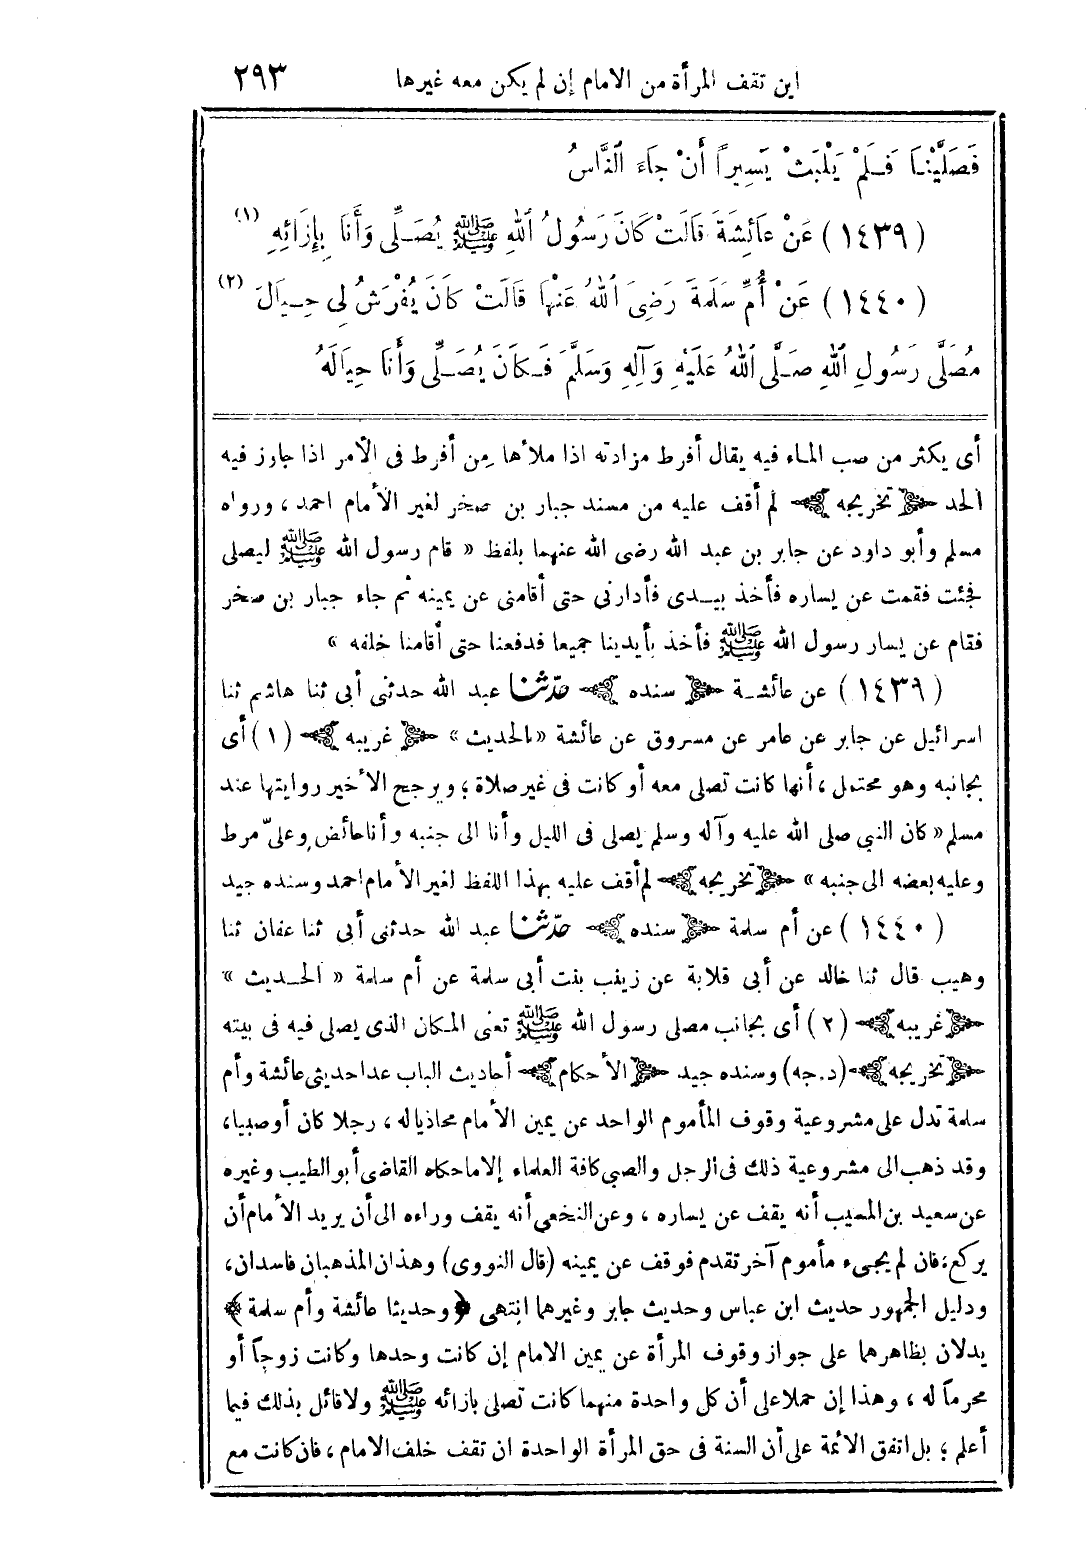 اين تقف المرأة من الامام إن لم يكن معه غيرها ٢٩٣
فَصَلَّيْنَا فَلَمْ يَلْبَثْ يَسِيراً أَنْ جَاءَ النَّاسُ
(١٤٣٩) عَنْ عَائِشَةَ قَالَتْ كَانَ رَسُولُ اللهِ ﷺ يُصَلِّى وَأَنَا بِإِزَائِهِ (١)
(١٤٤٠) عَنْ أُمِّ سَلَمَةَ رَضِىَ اللهُ عَنْهَا قَالَتْ كَانَ يُفْرَشُ لِى حِيَالَ (٢)
مُصَلَّى رَسُولِ اللهِ صَلَّى اللهُ عَلَيْهِ وَآلِهِ وَسَلَّمَ فَكَانَ يُصَلِّى وَأَنَا حِيَالَهُ
أى يكثر من صب الماء فيه يقال أفرط مزادته اذا ملأها مِن أفرط فى الأمر اذا جاوز فيه
الحد ﴿تخريجه﴾ لم أقف عليه من مسند جبار بن صخر لغير الأمام احمد ، ورواه
مسلم وأبو داود عن جابر بن عبد الله رضى الله عنهما بلفظ « قام رسول الله ﷺ ليصلى
فجئت فقمت عن يساره فأخذ بيدى فأدارنى حتى أقامنى عن يمينه ثم جاء جبار بن صخر
فقام عن يسار رسول الله ﷺ فأخذ بأيدينا جميعا فدفعنا حتى أقامنا خلفه »
(١٤٣٩) عن عائشة ﴿سنده﴾ حدّثنا عبد الله حدثنى أبى ثنا هاشم ثنا
اسرائيل عن جابر عن عامر عن مسروق عن عائشة «الحديث» ﴿غريبه﴾ (١) أى
بجانبه وهو محتمل ، أنها كانت تصلى معه أو كانت فى غير صلاة ؛ ويرجح الأخير روايتها عند
مسلم « كان النبي صلى الله عليه وآله وسلم يصلى فى الليل وأنا الى جنبه وأنا حائض وعلىّ مرط
وعليه بعضه الى جنبه » ﴿تخريجه﴾ لم أقف عليه بهذا اللفظ لغير الأمام احمد وسنده جيد
(١٤٤٠) عن أم سلمة ﴿سنده﴾ حدّثنا عبد الله حدثنى أبى ثنا عفان ثنا
وهيب قال ثنا خالد عن أبى قلابة عن زينب بنت أبى سلمة عن أم سلمة « الحديث »
﴿غريبه﴾ (٢) أى بجانب مصلى رسول الله ﷺ تعنى المكان الذى يصلى فيه فى بيته
﴿تخريجه﴾ (د.جه) وسنده جيد ﴿الأحكام﴾ أحاديث الباب عدا حديثى عائشة وأم
سلمة تدل على مشروعية وقوف المأموم الواحد عن يمين الأمام محاذيا له ، رجلا كان أو صبيا ،
وقد ذهب الى مشروعية ذلك فى الرجل والصبى كافة العلماء إلا ما حكاه القاضى أبو الطيب وغيره
عن سعيد بن المسيب أنه يقف عن يساره ، وعن النخعى أنه يقف وراءه الى أن يريد الأمام أن
يركع ، فان لم يجىء مأموم آخر تقدم فوقف عن يمينه (قال النووى) وهذان المذهبان فاسدان ،
ودليل الجمهور حديث ابن عباس وحديث جابر وغيرهما انتهى ﴿وحديثا عائشة وأم سلمة﴾
يدلان بظاهرهما على جواز وقوف المرأة عن يمين الامام إن كانت وحدها وكانت زوجاً أو
محرماً له ، وهذا إن حملا على أن كل واحدة منهما كانت تصلى بازائه ﷺ ولا قائل بذلك فيما
أعلم ؛ بل اتفق الائمة على أن السنة فى حق المرأة الواحدة ان تقف خلف الامام ، فان كانت مع